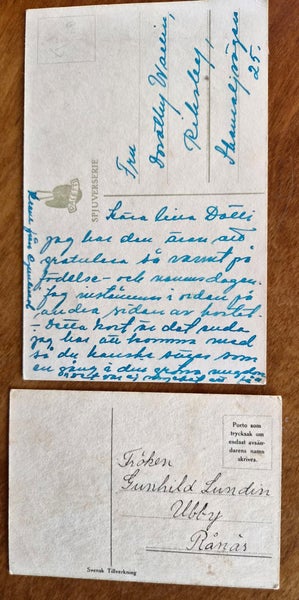 Fru
Dorothy Wallin,
Rikshov,
25.
SPJUVERSERIE
Kära lilla Dolli
jag har den äran att
gratulera så varmt på
födelse- och namnsdagen.
Jag instämmer i orden på
andra sidan av kortet
Detta kort är det enda
jag har att komma med
så du kanske säger som
en gång
Porto som
trycksak om
endast avsän-
darens namn
skrives.
Fröken
Gunhild Lundin
Ubby
Rånäs
Svensk Tillverkning